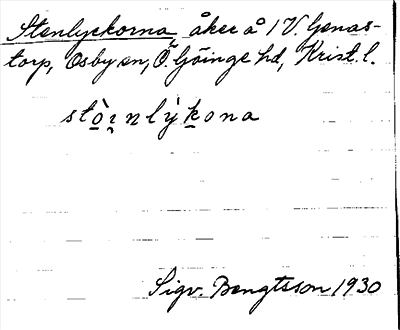 Stenlyckorna, åker å 1 V. Genas-
torp, Osby sn, Ö. Göinge hd, Krist. l.
stò̠i̠nlỳk̠ona
Sigv. Bengtsson 1930